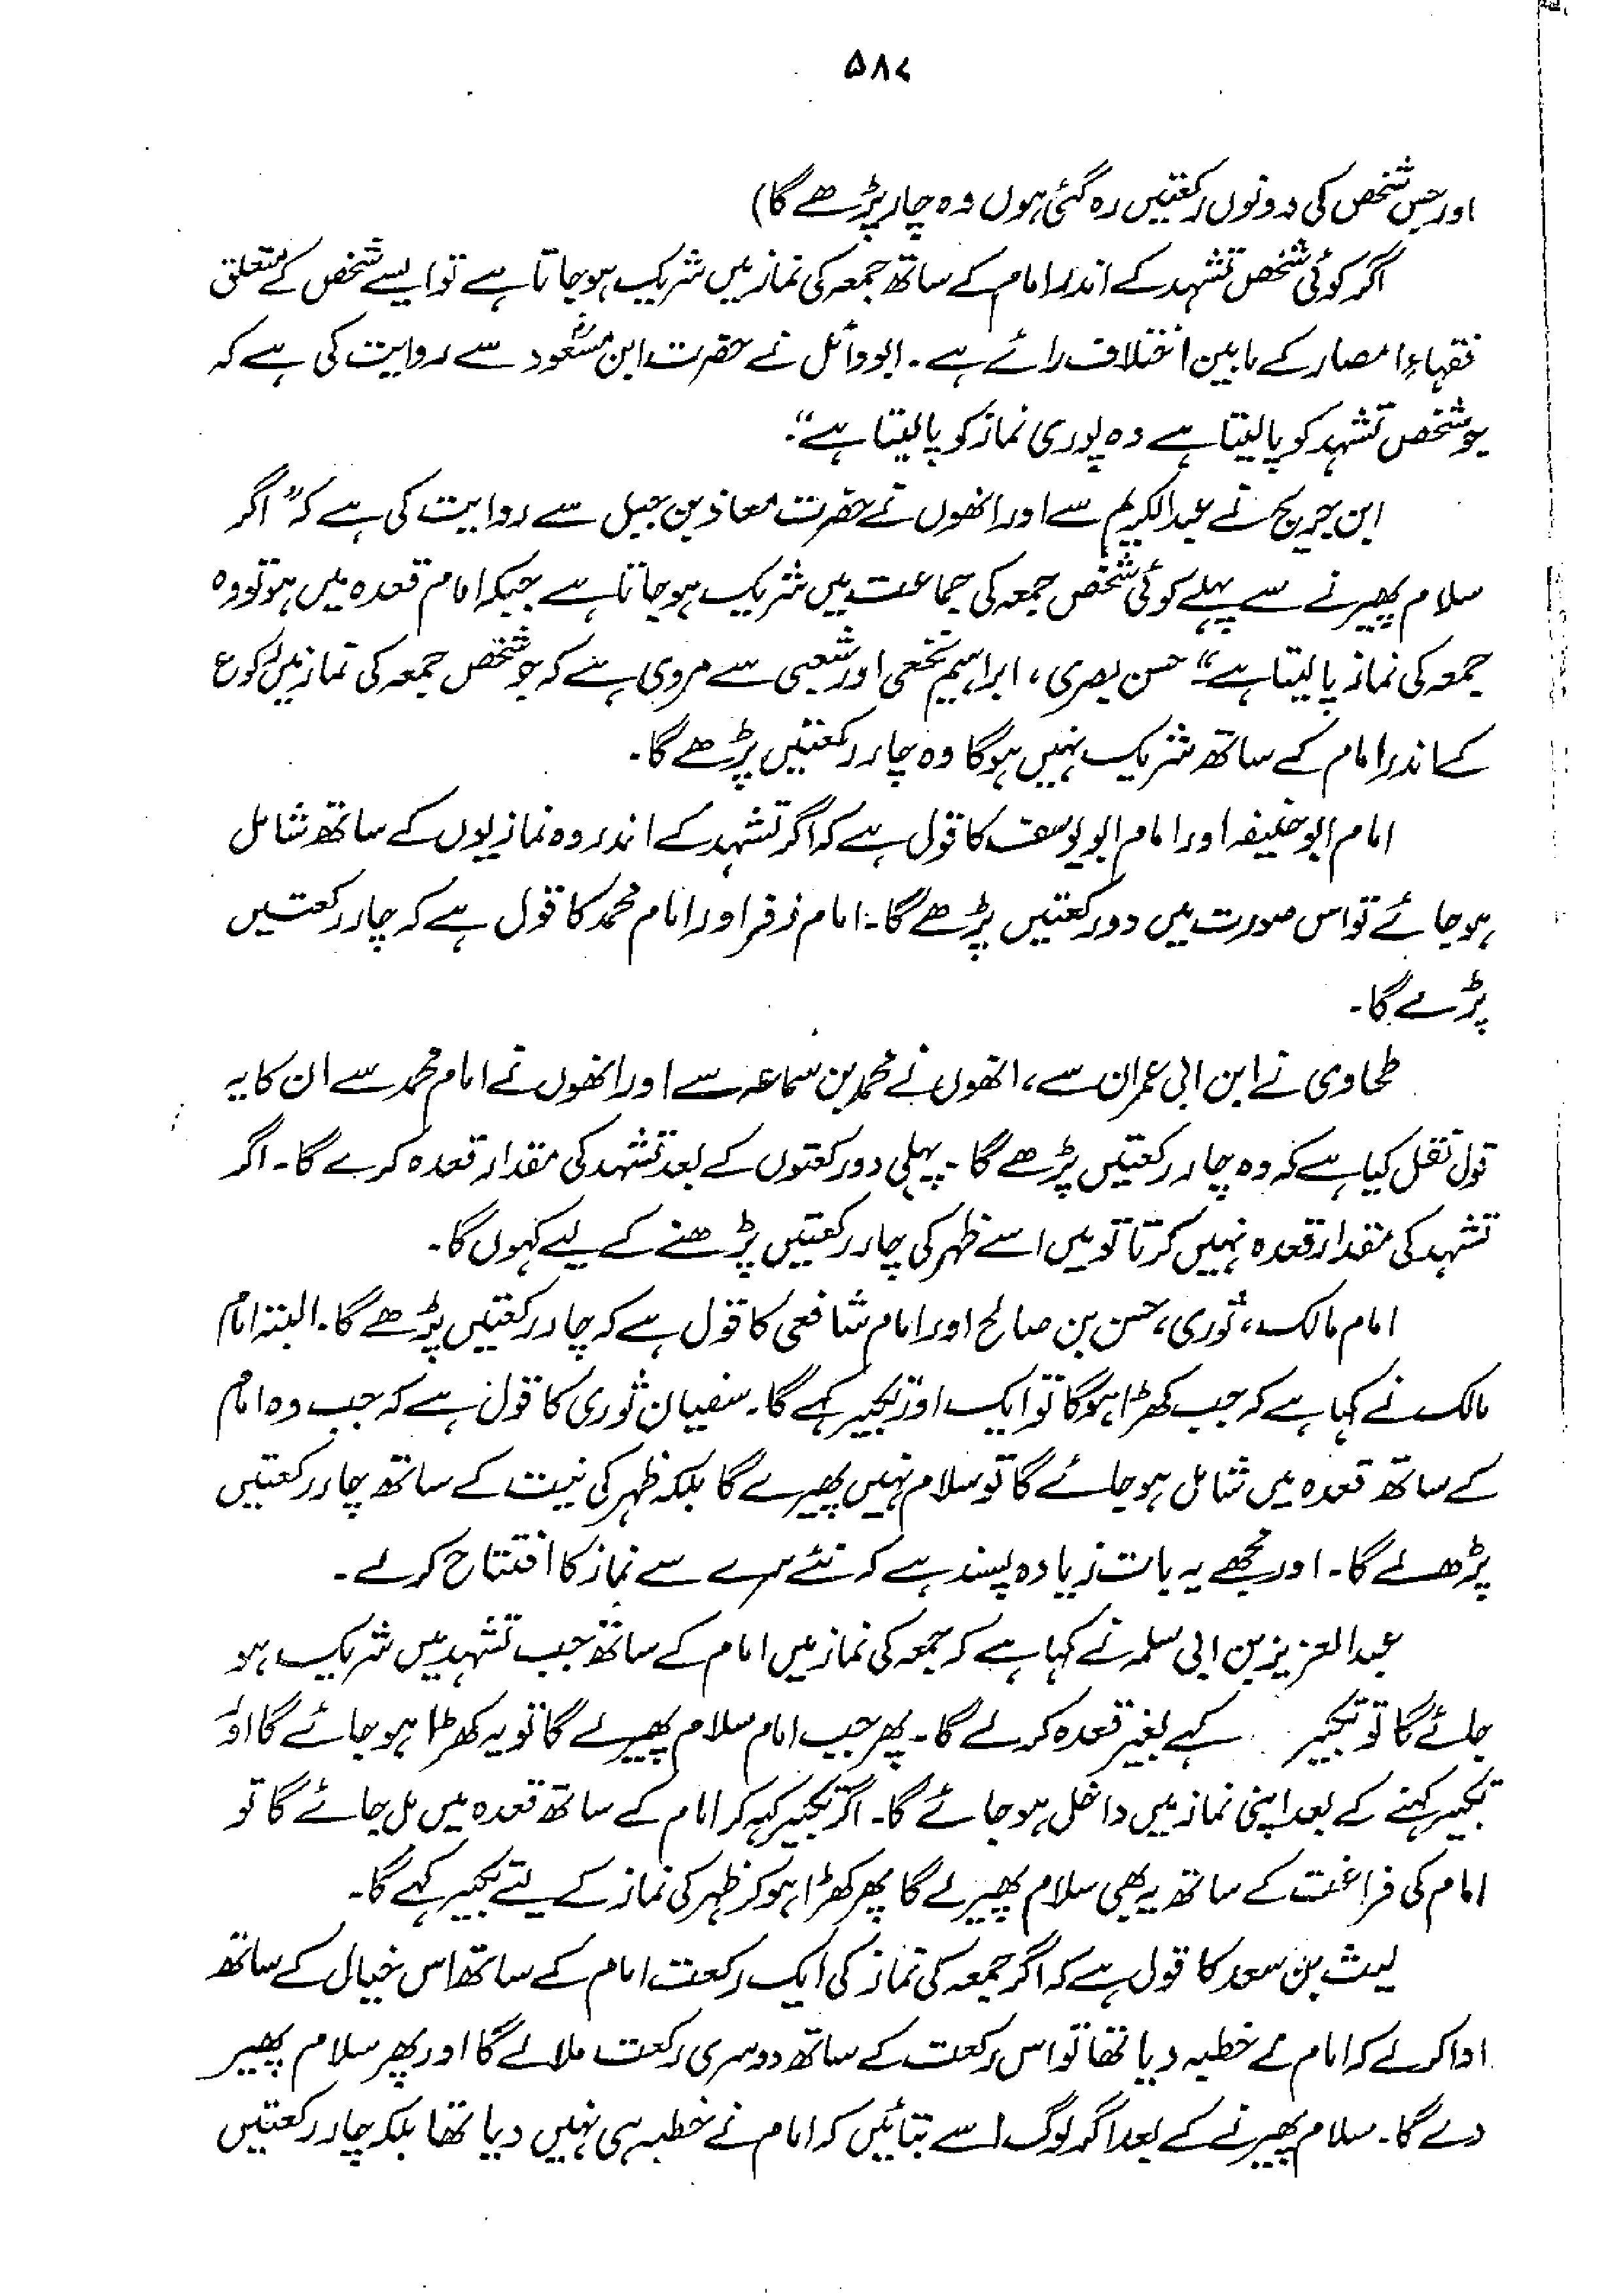 ۵۸۷
اور جس شخص کی دونوں رکعتیں رہ گئی ہوں وہ چار پڑھے گا)
اگر کوئی شخص تشہد کے اندر امام کے ساتھ جمعہ کی نماز میں شریک ہو جاتا ہے تو ایسے شخص کے متعلق
فقہاءِ امصار کے مابین اختلاف رائے ہے۔ ابو وائل نے حضرت ابن مسعودؓ سے روایت کی ہے کہ
جو شخص تشہد کو پا لیتا ہے وہ پوری نماز کو پا لیتا ہے“۔
ابن جریج نے عبدالکریم سے اور انھوں نے حضرت معاذ بن جبل سے روایت کی ہے کہ ”اگر
سلام پھیرنے سے پہلے کوئی شخص جمعہ کی جماعت میں شریک ہو جاتا ہے جبکہ امام قعدہ میں ہو تو وہ
جمعہ کی نماز پا لیتا ہے“ حسن بصری، ابراہیم نخعی اور شعبی سے مروی ہے کہ جو شخص جمعہ کی نماز میں رکوع
کے اندر امام کے ساتھ شریک نہیں ہوگا وہ چار رکعتیں پڑھے گا۔
امام ابو حنیفہ اور امام ابو یوسف کا قول ہے کہ اگر تشہد کے اندر وہ نمازیوں کے ساتھ شامل
ہو جائے تو اس صورت میں دو رکعتیں پڑھے گا۔ امام زفر اور امام محمد کا قول ہے کہ چار رکعتیں
پڑے گا۔
طحاوی نے ابن ابی عمران سے، انھوں نے محمد بن سماعہ سے اور انھوں نے امام محمد سے ان کا یہ
قول نقل کیا ہے کہ وہ چار رکعتیں پڑھے گا۔ پہلی دو رکعتوں کے بعد تشہد کی مقدار قعدہ کرے گا۔ اگر
تشہد کی مقدار قعدہ نہیں کرتا تو میں اسے ظہر کی چار رکعتیں پڑھنے کے لیے کہوں گا۔
امام مالک، ثوری، حسن بن صالح اور امام شافعی کا قول ہے کہ چار رکعتیں پڑھے گا۔ البتہ امام
مالک نے کہا ہے کہ جب کھڑا ہوگا تو ایک اور تکبیر کہے گا۔ سفیان ثوری کا قول ہے کہ جب وہ امام
کے ساتھ قعدہ میں شامل ہو جائے گا تو سلام نہیں پھیرے گا بلکہ ظہر کی نیت کے ساتھ چار رکعتیں
پڑھ لے گا۔ اور مجھے یہ بات زیادہ پسند ہے کہ نئے سرے سے نماز کا افتتاح کر لے۔
عبدالعزیز بن ابی سلمہ نے کہا ہے کہ جمعہ کی نماز میں امام کے ساتھ جب تشہد میں شریک ہو
جائے گا تو تکبیر کہے بغیر قعدہ کرلے گا۔ پھر جب امام سلام پھیرلے گا تو یہ کھڑا ہو جائے گا اور
تکبیر کہنے کے بعد اپنی نماز میں داخل ہو جائے گا۔ اگر تکبیر کہہ کر امام کے ساتھ قعدہ میں مل جائے گا تو
امام کی فراغت کے ساتھ یہ بھی سلام پھیرلے گا پھر کھڑا ہو کر ظہر کی نماز کے لئے تکبیر کہے گا۔
لیث بن سعد کا قول ہے کہ اگر جمعہ کی نماز کی ایک رکعت امام کے ساتھ اس خیال کے ساتھ
ادا کرلے کہ امام نے خطبہ دیا تھا تو اس رکعت کے ساتھ دوسری رکعت ملالے گا اور پھر سلام پھیر
دے گا۔ سلام پھیرنے کے بعد اگر لوگ اسے بتائیں کہ امام نے خطبہ ہی نہیں دیا تھا بلکہ چار رکعتیں